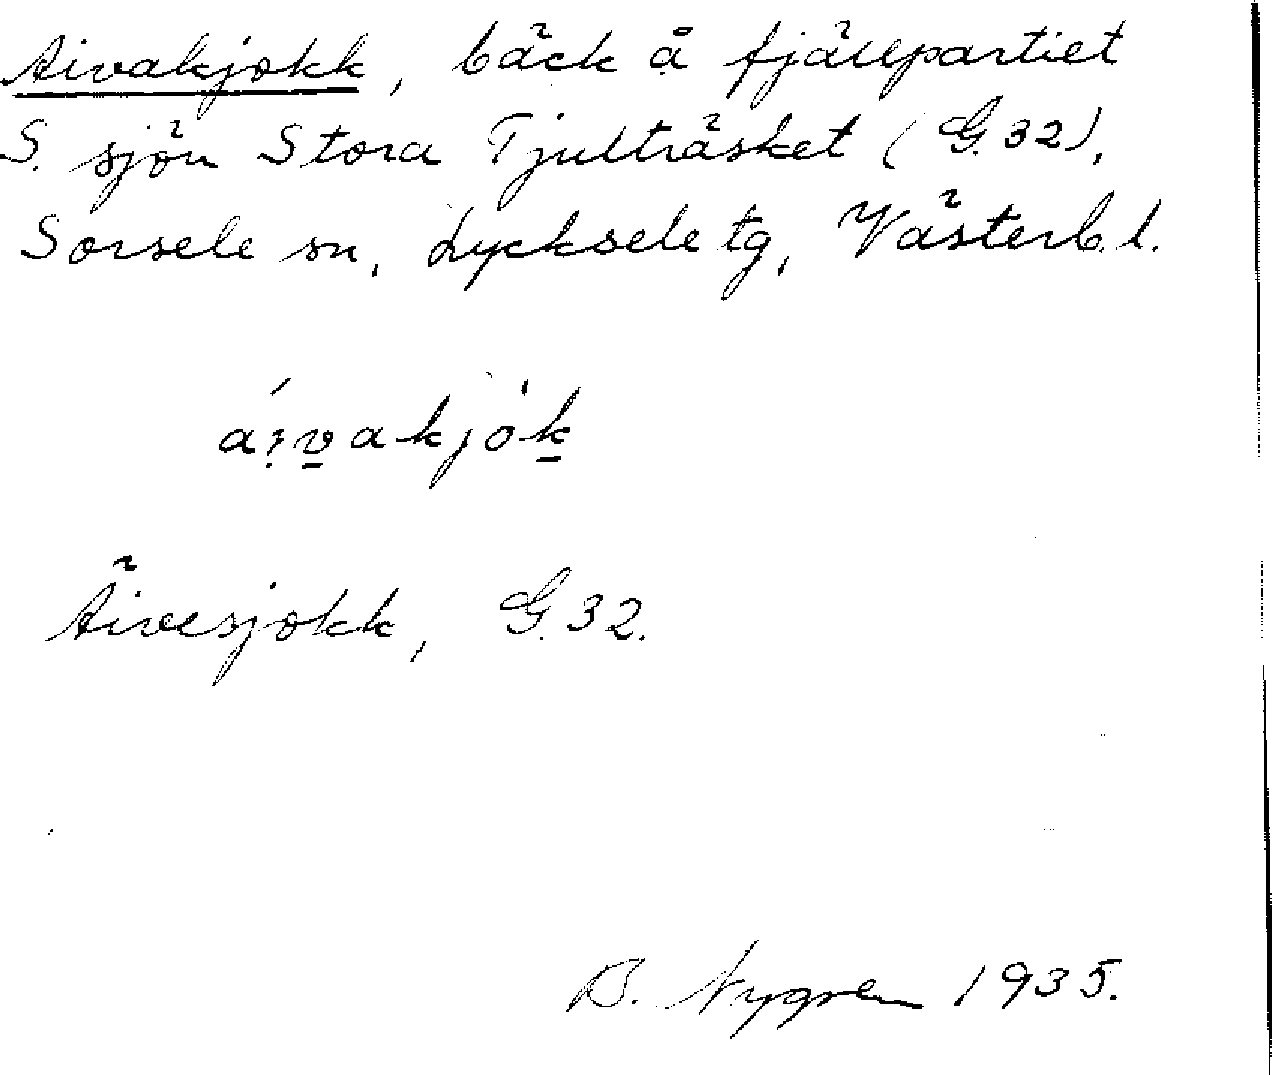 Aivakjokk, bäck å fjällpartiet
S. sjön Stora Tjulträsket (G. 32),
Sorsele sn, Lycksele tg, Västerb. l.
Äivesjokk, G. 32.
B. Nygren 1935.